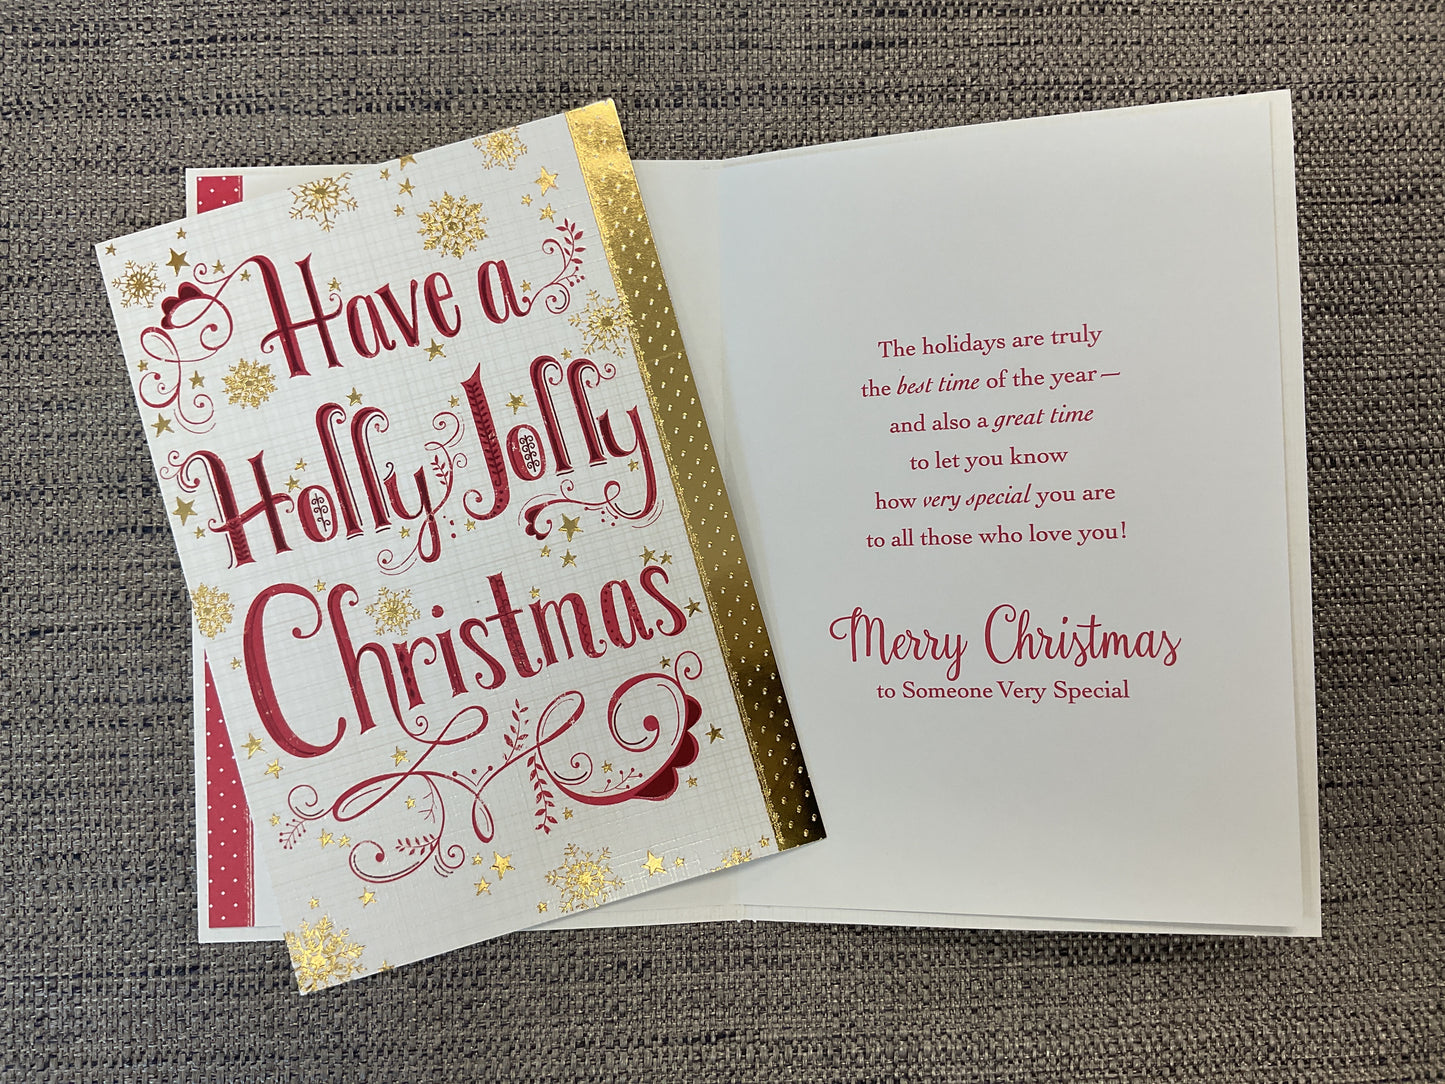 Have a
Holly Jolly
Christmas
The holidays are truly
the best time of the year—
and also a great time
to let you know
how very special you are
to all those who love you!
Merry Christmas
to Someone Very Special